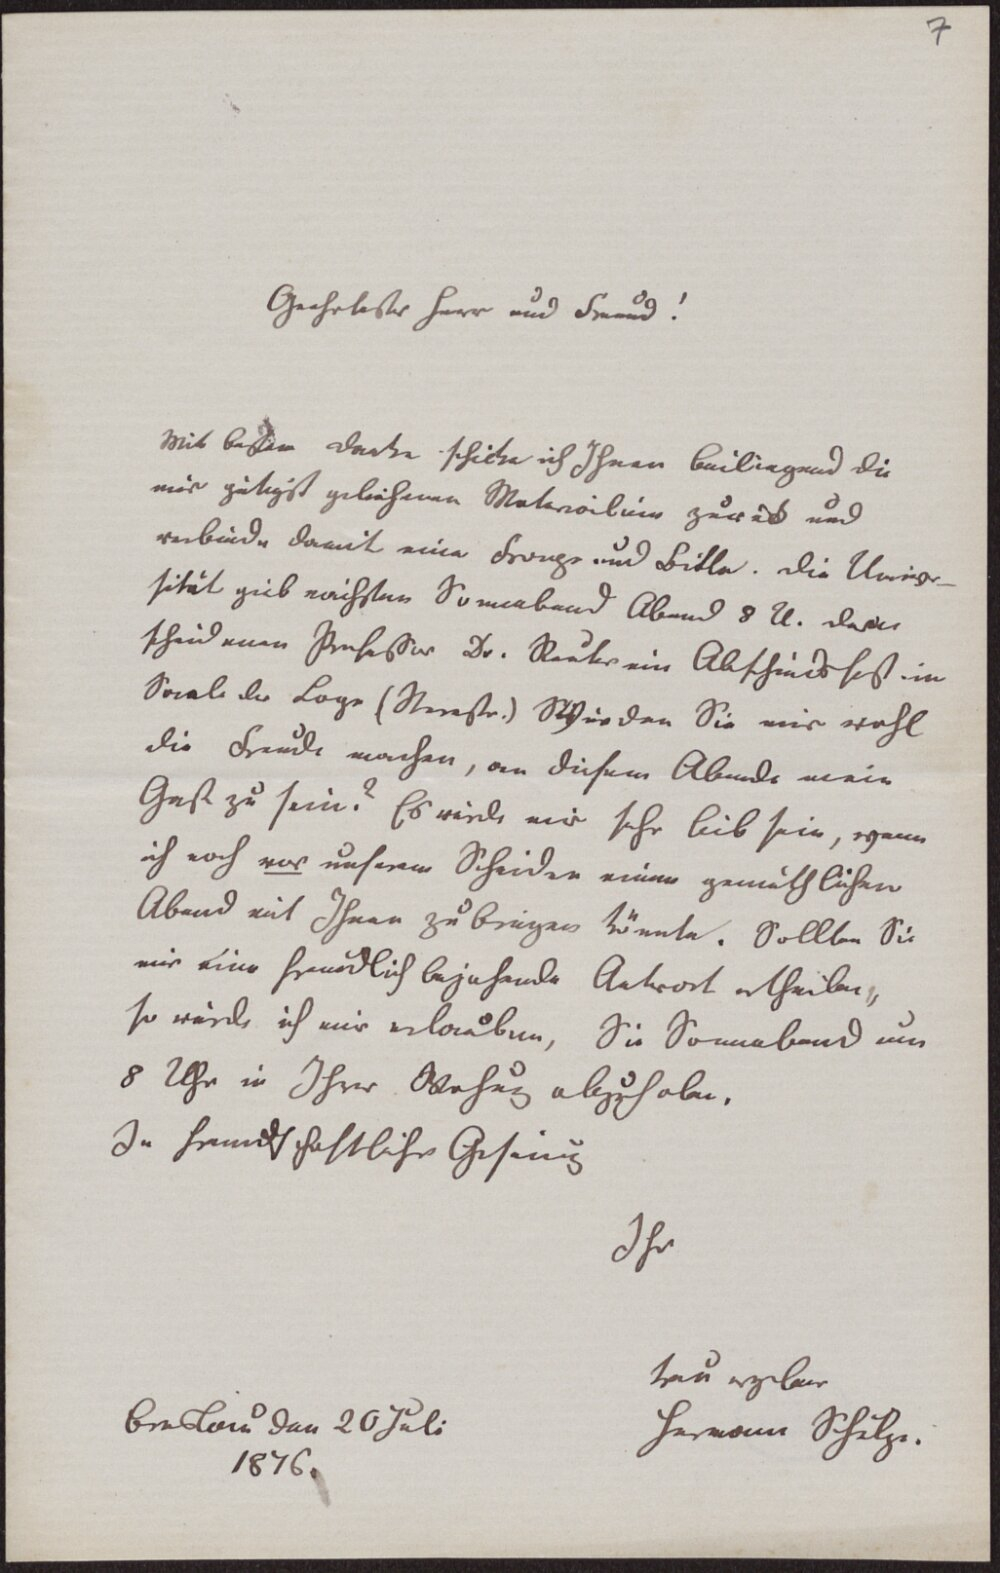 7
Geehrtester Herr und Freund!
Mit bestem Danke schicke ich Ihnen beiliegend die
mir gütigst geliehenen Materialien zurück und
verbinde damit eine Frage und Bitte. Die Univer-
sität giebt nächsten Sonnabend Abend 8 U. dem
scheidenen Professor Dr. Reuter ein Abschiedsfest im
Saale der Loge (Sternstr.) Würden Sie mir wohl
die Freude machen, an diesem Abende mein
Gast zu sein? Es würde mir sehr lieb sein, wenn
ich noch vor unserem Scheiden einen gemüthlichen
Abend mit Ihnen zubringen könnte. Sollten Sie
mir eine freundlich bejahende Antwort ertheilen,
so würde ich mir erlauben, Sie Sonnabend um
8 Uhr in Ihrer Wohnung abzuholen.
In freundschaftlicher Gesinnung
Ihr
treu ergebener
Hermann Schulze.
Breslau den 20 Juli
1876.